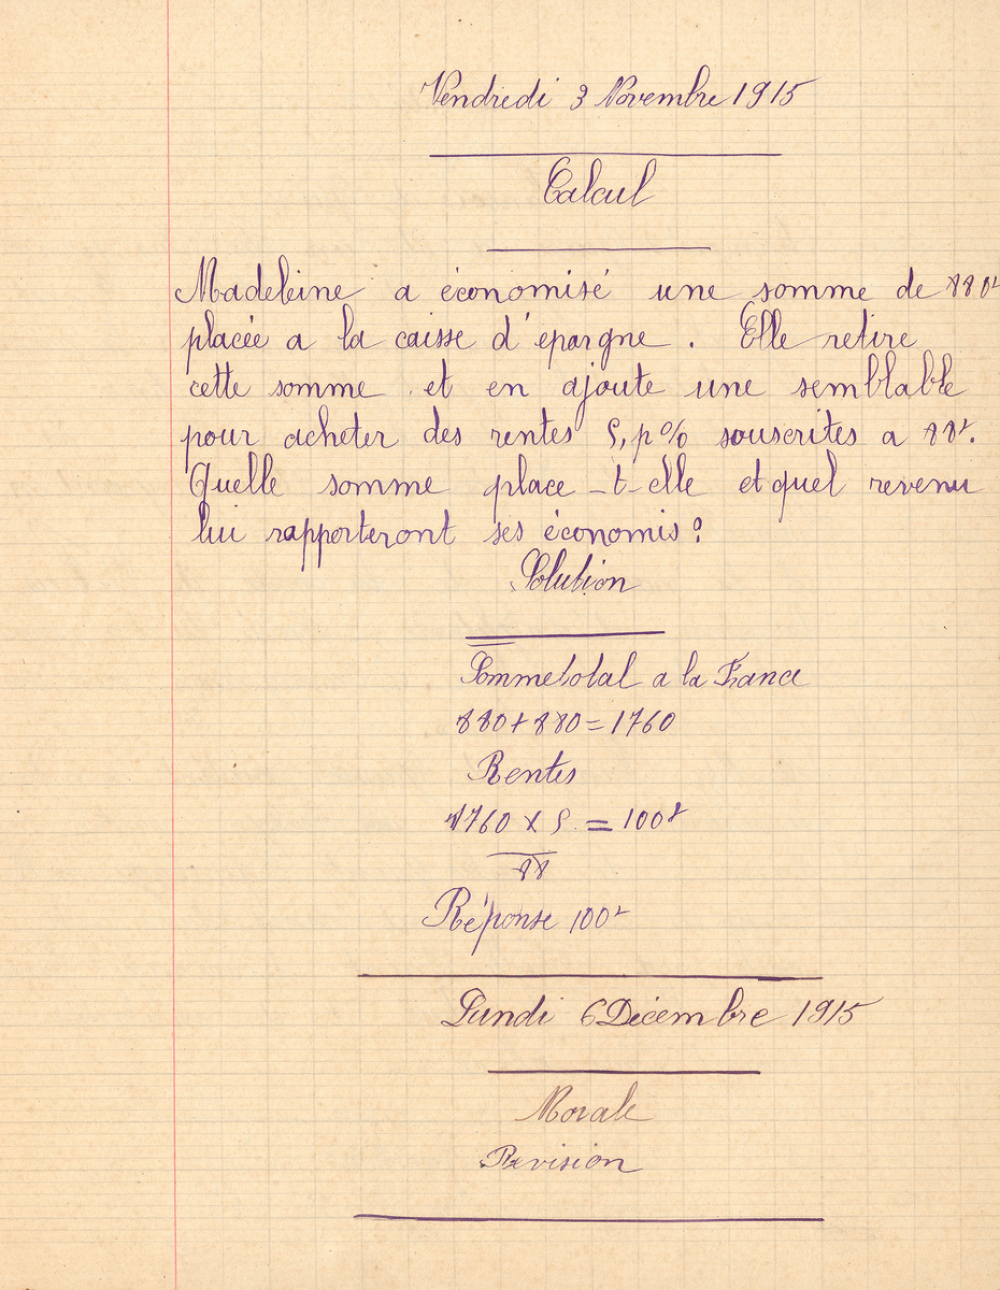 Vendredi 3 Novembre 1915
Calcul
Madeleine a économisé une somme de 880f
placée a la caisse d'épargne. Elle retire
cette somme et en ajoute une semblable
pour acheter des rentes 5,p% souscrites a 88f.
Quelle somme place-t-elle et quel revenu
lui rapporteront ses économis?
Solution
Somme total a la France
880+880=1760
Rentes
1760 x 5 = 100f
88
Réponse 100f
Lundi 6 Décembre 1915
Morale
Revision